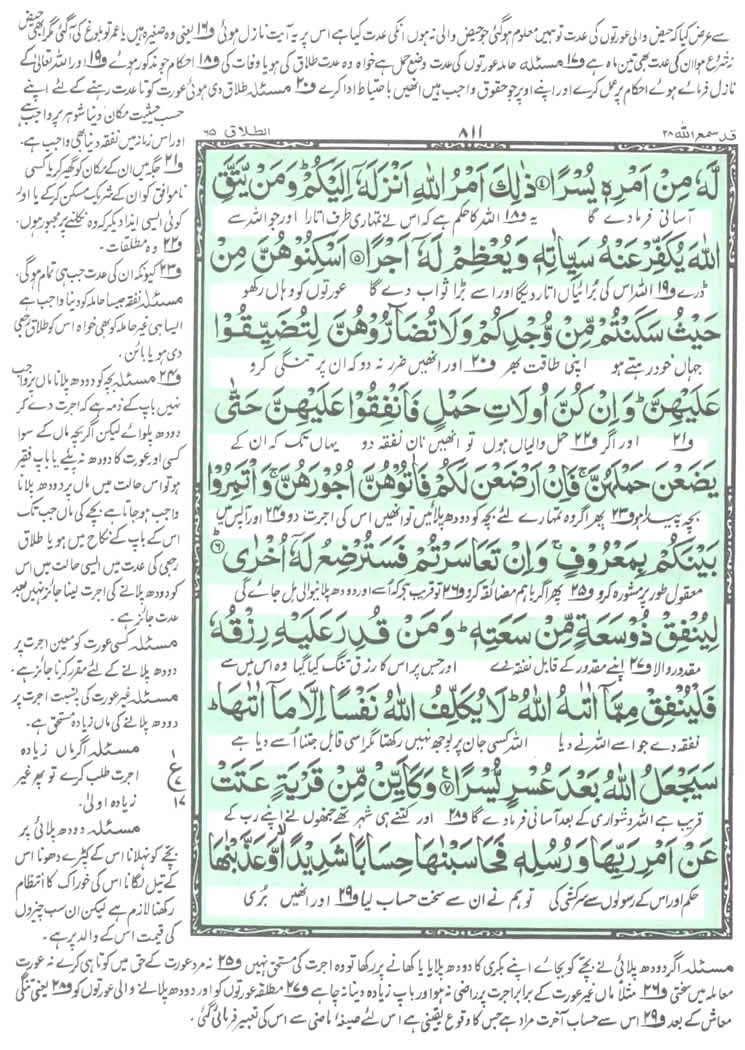 سے عرض کیا کہ حیض والی عورتوں کی عدت تو ہمیں معلوم ہوگئی جو حیض والی نہ ہوں انکی عدت کیا ہے اس پر یہ آیت نازل ہوئی و۱۶ یعنی وہ صغیرہ ہیں یا عمر تو بلوغ کی آگئی مگر ابھی حیض
نہ شروع ہوا ان کی عدت بھی تین ماہ ہے و۱۷ مسئلہ حاملہ عورتوں کی عدت وضع حمل ہے خواہ وہ عدت طلاق کی ہو یا وفات کی و۱۸ احکام جو مذکور ہوئے و۱۹ اور اللہ تعالیٰ کے
نازل فرمائے ہوئے احکام پر عمل کرے اور اپنے اوپر جو حقوق واجب ہیں انھیں باحتیاط ادا کرے و۲۰ مسئلہ طلاق دی ہوئی عورت کو تا عدت رہنے کے لئے اپنے
حسب حیثیت مکان دینا شوہر پر واجب ہے
اور اس زمانہ میں نفقہ دینا بھی واجب ہے۔
و۲۱ جگہ میں ان کے مکان کو گھیر کر یا کسی
ناموافق کو ان کے شریک مسکن کرکے یا اور
کوئی ایسی ایذا دیکر کہ وہ نکلنے پر مجبور ہوں۔
و۲۲ وہ مطلقات۔
و۲۳ کیونکہ ان کی عدت جب ہی تمام ہوگی۔
مسئلہ نفقہ جیسا حاملہ کو دینا واجب ہے
ایسا ہی غیر حاملہ کو بھی خواہ اس کو طلاق رجعی
دی ہو یا بائن۔
و۲۴ مسئلہ بچہ کو دودھ پلانا ماں پر واجب
نہیں باپ کے ذمہ ہے کہ اجرت دے کر
دودھ پلوائے لیکن اگر بچہ ماں کے سوا
کسی اور عورت کا دودھ نہ پئے یا باپ فقیر
ہو تو اس حالت میں ماں پر دودھ پلانا
واجب ہوجاتا ہے بچے کی ماں جب تک
اس کے باپ کے نکاح میں ہو یا طلاق
رجعی کی عدت میں ایسی حالت میں اس
کو دودھ پلانے کی اجرت لینا جائز نہیں بعد
عدت جائز ہے۔
مسئلہ کسی عورت کو معین اجرت پر
دودھ پلانے کے لئے مقرر کرنا جائز ہے۔
مسئلہ غیر عورت کی بنسبت اجرت پر
دودھ پلانے کی ماں زیادہ مستحق ہے۔
مسئلہ اگر ماں زیادہ
اجرت طلب کرے تو پھر غیر
زیادہ اولیٰ۔
مسئلہ دودھ پلائی پر
بچے کو نہلانا اس کے کپڑے دھونا اس
کے تیل لگانا اس کی خوراک کا انتظام
رکھنا لازم ہے لیکن ان سب چیزوں
کی قیمت اس کے والد پر ہے۔
۱
ع
۱۷
قد سمع اللہ ۲۸
۸۱۱
الطلاق ۶۵
لَّهٗ مِنْ اَمْرِهٖ یُسْرًا ﴿۴﴾ ذٰلِكَ اَمْرُ اللّٰهِ اَنْزَلَهٗۤ اِلَیْكُمْ ؕ وَ مَنْ یَّتَّقِ
آسانی فرما دے گا یہ و۱۸ اللہ کا حکم ہے کہ اس نے تمہاری طرف اتارا اور جو اللہ سے
اللّٰهَ یُكَفِّرْ عَنْهُ سَیِّاٰتِهٖ وَ یُعْظِمْ لَهٗۤ اَجْرًا ﴿۵﴾ اَسْكِنُوْهُنَّ مِنْ
ڈرے و۱۹ اللہ اس کی برائیاں اتار دیگا اور اسے بڑا ثواب دے گا عورتوں کو وہاں رکھو
حَیْثُ سَكَنْتُمْ مِّنْ وُّجْدِكُمْ وَ لَا تُضَآرُّوْهُنَّ لِتُضَیِّقُوْا
جہاں خود رہتے ہو اپنی طاقت بھر و۲۰ اور انھیں ضرر نہ دو کہ ان پر تنگی کرو
عَلَیْهِنَّ ؕ وَ اِنْ كُنَّ اُولَاتِ حَمْلٍ فَاَنْفِقُوْا عَلَیْهِنَّ حَتّٰى
و۲۱ اور اگر و۲۲ حمل والیاں ہوں تو انھیں نان نفقہ دو یہاں تک کہ ان کے
یَضَعْنَ حَمْلَهُنَّ ۚ فَاِنْ اَرْضَعْنَ لَكُمْ فَاٰتُوْهُنَّ اُجُوْرَهُنَّ ۚ وَ اْتَمِرُوْا
بچہ پیدا ہو و۲۳ پھر اگر وہ تمہارے لئے بچہ کو دودھ پلائیں تو انھیں اس کی اجرت دو و۲۴ اور آپس میں
بَیْنَكُمْ بِمَعْرُوْفٍ ۚ وَ اِنْ تَعَاسَرْتُمْ فَسَتُرْضِعُ لَهٗۤ اُخْرٰى ﴿۶﴾
معقول طور پر مشورہ کرو و۲۵ پھر اگر باہم مضائقہ کرو و۲۶ تو قریب ہے کہ اسے اور دودھ پلانیوالی مل جائے گی
لِیُنْفِقْ ذُوْ سَعَةٍ مِّنْ سَعَتِهٖ ؕ وَ مَنْ قُدِرَ عَلَیْهِ رِزْقُهٗ
مقدور والا و۲۷ اپنے مقدور کے قابل نفقہ دے اور جس پر اس کا رزق تنگ کیا گیا وہ اس میں سے
فَلْیُنْفِقْ مِمَّاۤ اٰتٰىهُ اللّٰهُ ؕ لَا یُكَلِّفُ اللّٰهُ نَفْسًا اِلَّا مَاۤ اٰتٰىهَا ؕ
نفقہ دے جو اسے اللہ نے دیا اللہ کسی جان پر بوجھ نہیں رکھتا مگر اسی قابل جتنا اسے دیا ہے
سَیَجْعَلُ اللّٰهُ بَعْدَ عُسْرٍ یُّسْرًا ﴿۷﴾ وَ كَاَیِّنْ مِّنْ قَرْیَةٍ عَتَتْ
قریب ہے اللہ دشواری کے بعد آسانی فرما دے گا و۲۸ اور کتنے ہی شہر تھے جنھوں نے اپنے رب کے
عَنْ اَمْرِ رَبِّهَا وَ رُسُلِهٖ فَحَاسَبْنٰهَا حِسَابًا شَدِیْدًا ۙ وَّ عَذَّبْنٰهَا
حکم اور اس کے رسولوں سے سرکشی کی تو ہم نے ان سے سخت حساب لیا و۲۹ اور انھیں بری
مسئلہ اگر دودھ پلائی نے بچے کو بجائے اپنے بکری کا دودھ پلایا یا کھانے پر رکھا تو وہ اجرت کی مستحق نہیں و۲۵ نہ مرد عورت کے حق میں کوتاہی کرے نہ عورت
معاملہ میں سختی و۲۶ مثلاً ماں غیر عورت کے برابر اجرت پر راضی نہ ہو اور باپ زیادہ دینا نہ چاہے و۲۷ مطلقہ عورتوں کو اور دودھ پلانے والی عورتوں کو و۲۸ یعنی تنگی
معاش کے بعد و۲۹ اس سے حساب آخرت مراد ہے جس کا وقوع یقینی ہے اس لئے صیغہ ماضی سے اس کی تعبیر فرمائی گئی۔